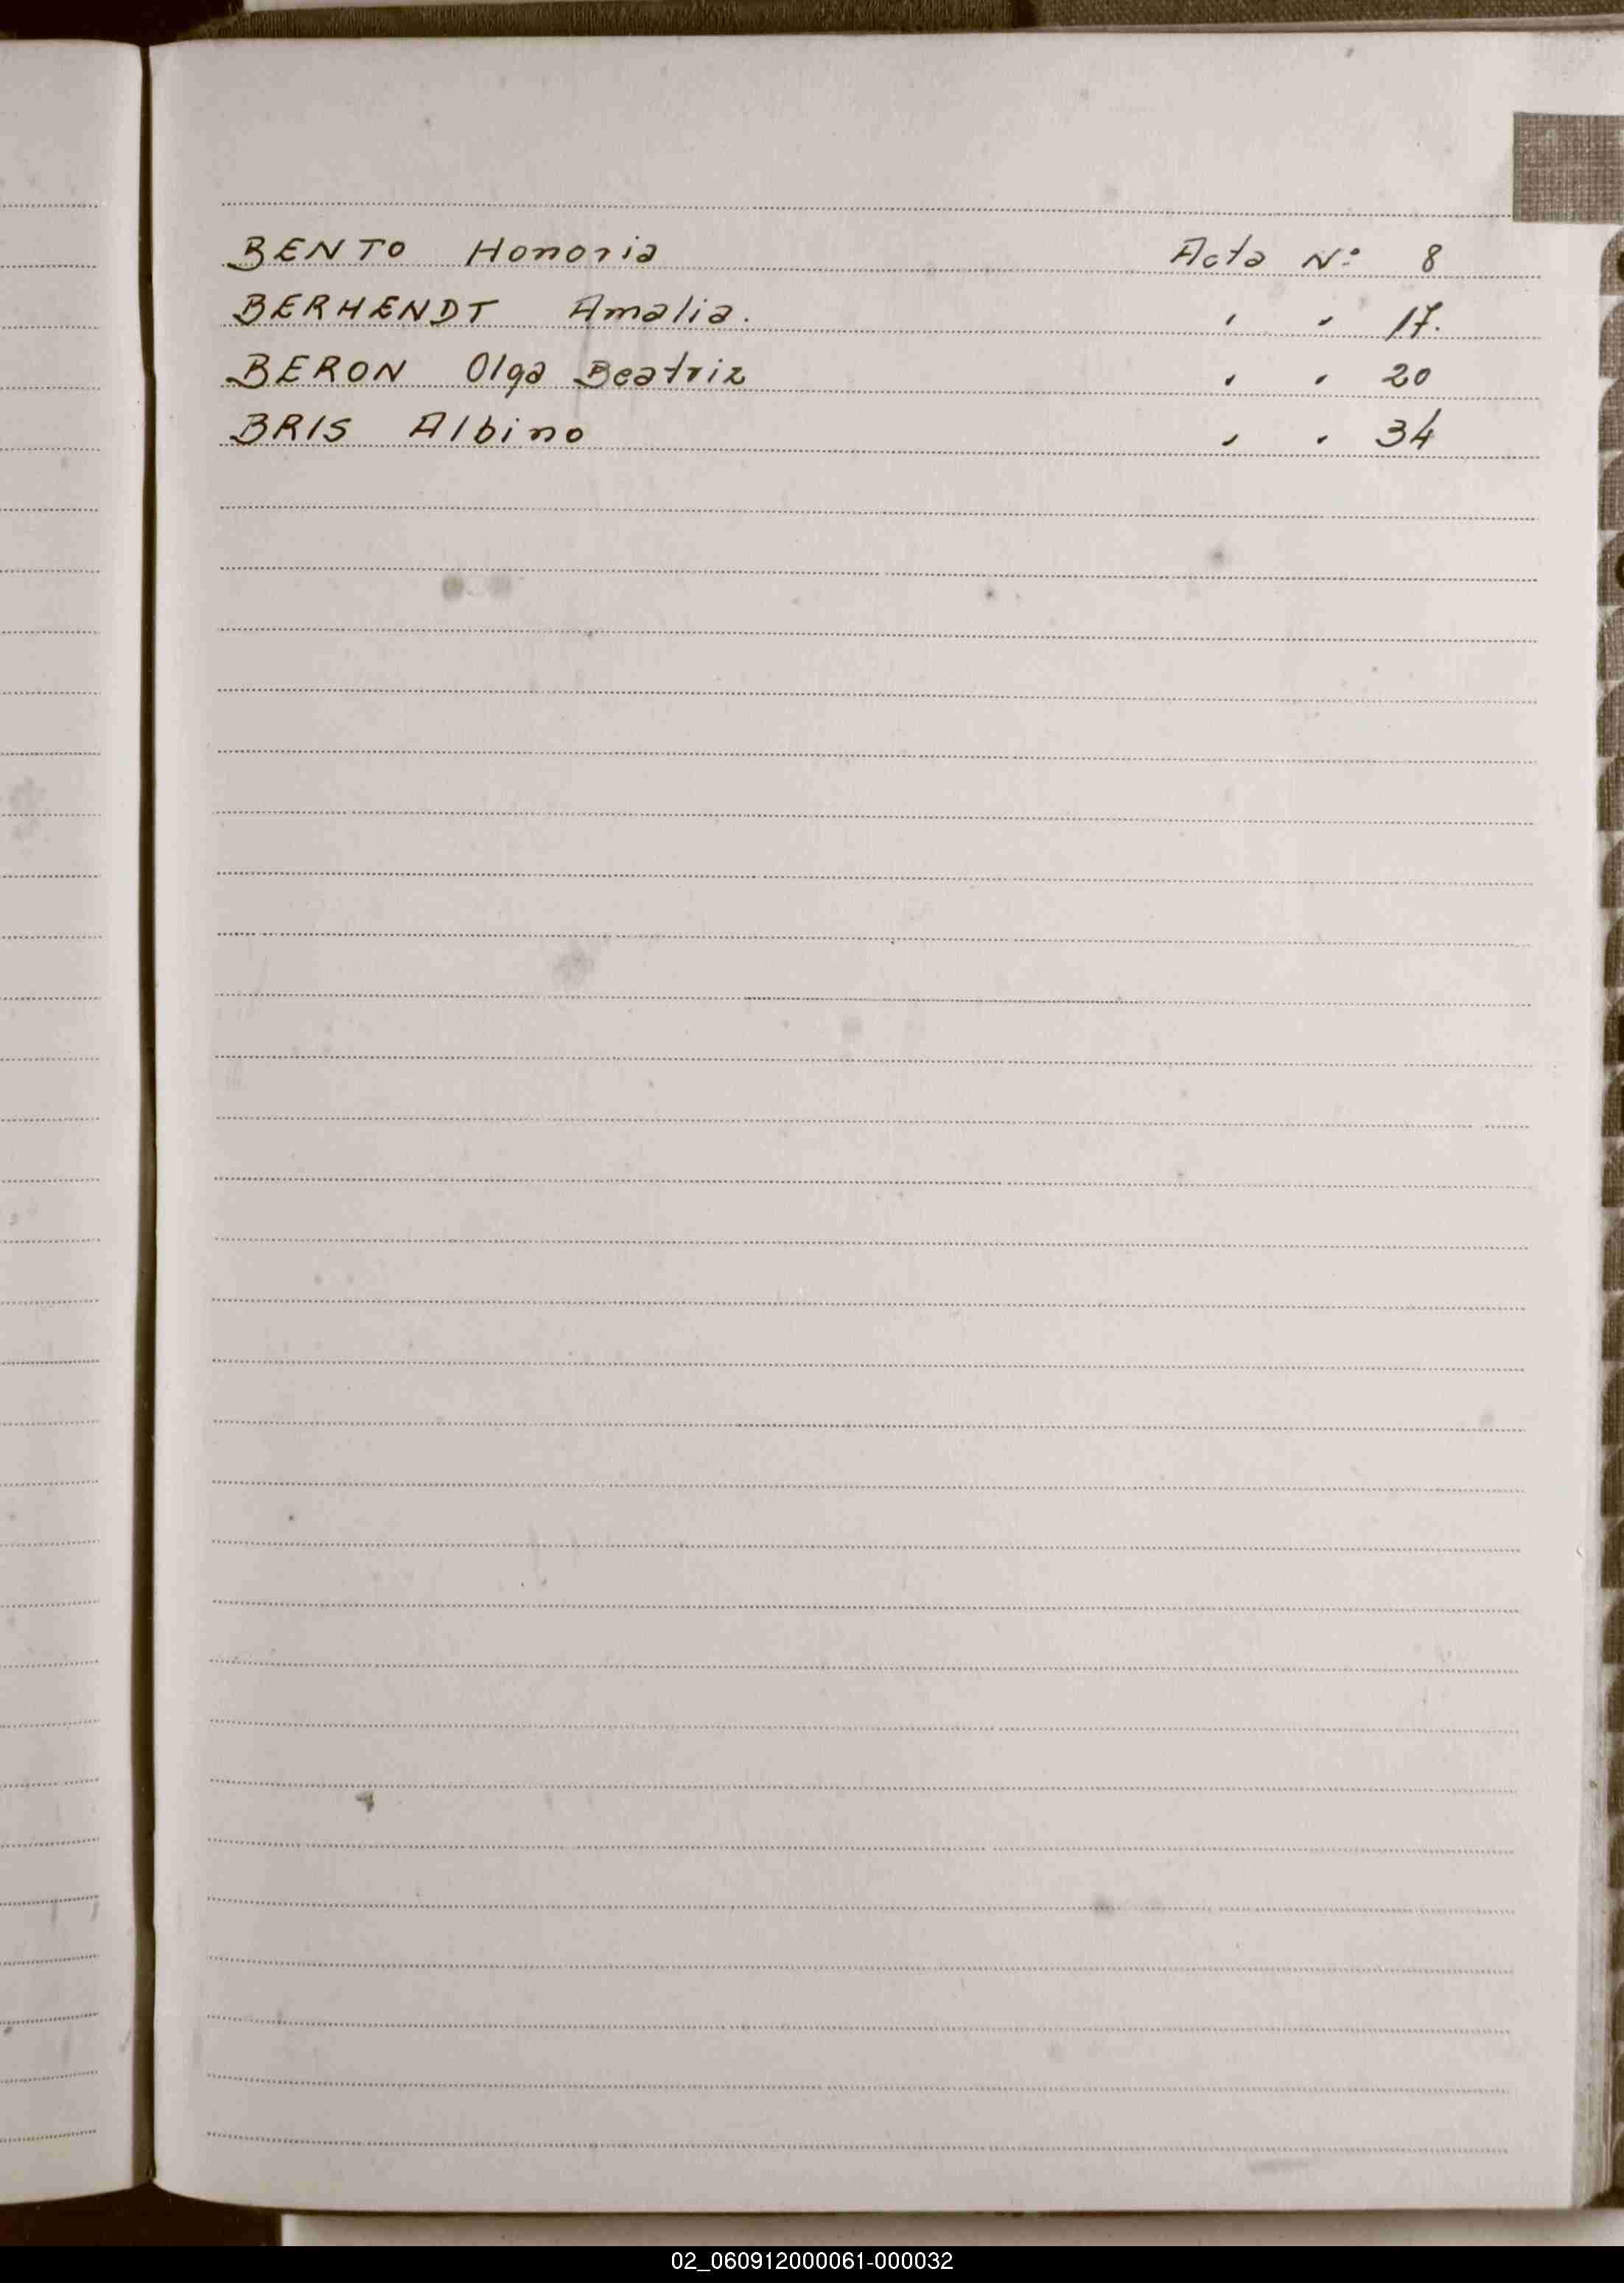 BENTO Honoria Acta Nº 8
BERHENDT Amalia. " " 17.
BERON Olga Beatriz " " 20
BRIS Albino " " 34
02_060912000061-000032